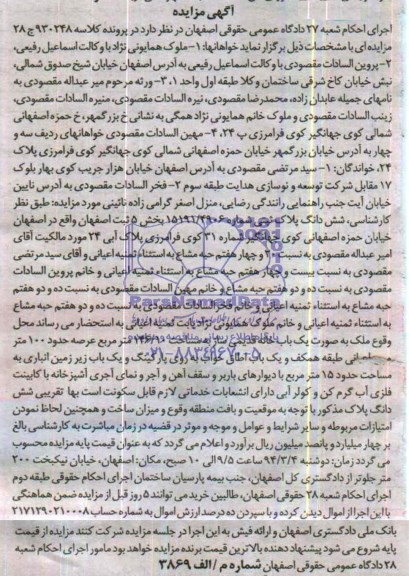 آگهی مزایده
اجرای احکام شعبه ۲۷ دادگاه عمومی حقوقی اصفهان در نظر دارد در پرونده کلاسه ۹۳۰۲۴۸ ج ۲۸
مزایده ای با مشخصات ذیل برگزار نماید خواهانها: ۱- ملوک همایونی نژاد با وکالت اسماعیل رفیعی،
۲- پروین السادات مقصودی با وکالت اسماعیل رفیعی به آدرس اصفهان خیابان شیخ صدوق شمالی،
نبش خیابان کاخ شرقی ساختمان وکلا طبقه اول واحد ۳،۱- ورثه مرحوم میر عبداله مقصودی به
نامهای جمیله عابدان زاده، محمدرضا مقصودی، نیره السادات مقصودی، منیره السادات مقصودی،
زینب السادات مقصودی و ملوک خانم همایونی نژاد همگی به نشانی خ بزرگمهر، خ حمزه اصفهانی
شمالی کوی جهانگیر کوی فرامرزی پ ۲۴، ۴- مهین السادات مقصودی خواهانهای ردیف سه و
چهار به آدرس خیابان بزرگمهر خیابان حمزه اصفهانی شمالی کوی جهانگیر کوی فرامرزی پلاک
۲۴، خواندگان: ۱- سید مرتضی مقصودی به آدرس اصفهان خیابان هزار جریب کوی بهار بلوک
۱۷ مقابل شرکت توسعه و نوسازی هدایت طبقه سوم ۲- فخر السادات مقصودی به آدرس نایین
خیابان آیت جنب راهنمایی رانندگی رضایی، منزل اصغر گرامی زاده نائینی مورد مزایده: طبق نظر
کارشناسی، شش دانگ پلاک ثبتی شماره ۱۵۱۹۱/۴۹۰۶ بخش ۵ ثبت اصفهان واقع در اصفهان
خیابان حمزه اصفهانی کوی جهانگیر شماره ۳۱ کوی فرامرزی پلاک آبی ۳۴ مورد مالکیت آقای
امیر عبداله مقصودی به نسبت و چهار هفتم حبه مشاع به استثناء ثمنیه اعیانی و آقای سید مرتضی
مقصودی به نسبت بیست و چهار هفتم حبه مشاع به استثناء ثمنیه اعیانی و خانم پروین السادات
مقصودی به نسبت ده و دو هفتم حبه مشاع و خانم مهین السادات مقصودی به نسبت ده و دو هفتم
حبه مشاع به استثناء ثمنیه اعیانی و خانم فخر السادات مقصودی به نسبت ده و دو هفتم حبه مشاع
به استثناء ثمنیه اعیانی و خانم ملوک همایونی نژاد بابت ثمنیه اعیانی به استحضار می رساند محل
وقوع ملک به صورت یک باب خانه قدیمی ساز به مساحت متر مربع عرصه حدود ۱۰۰ متر
اعیانی طبقه همکف و یک باب اطاق خواب به روی پارکینگ و یک باب زیر زمین انباری به
مساحت حدود ۱۵ متر مربع با دیوارهای باربر و سقف آهن و آجر و نمای آجری آشپزخانه با کابینت
فلزی آب گرم کن و کولر آبی دارای انشعابات خدماتی لازم قابل سکونت است بها تقریبی شش
دانگ پلاک مذکور با توجه به موقعیت و بافت منطقه وقوع و میزان ساخت و همچنین لحاظ نمودن
امتیازات مربوطه و سایر شرایط و عوامل و موجه و موثر در قضیه در زمان مباشرت به کارشناسی بالغ
بر چهار میلیارد و پانصد میلیون ریال برآورد و اعلام می گردد که به عنوان قیمت پایه مزایده محسوب
می گردد زمان: دوشنبه ۹۴/۳/۴ ساعت ۹/۵ الی ۱۰ صبح، مکان: اصفهان، خیابان نیکبخت ۲۰۰
متر جلوتر از دادگستری کل اصفهان، جنب بیمه پارسیان ساختمان اجرای احکام حقوقی طبقه دوم
اجرای احکام شعبه ۲۸ حقوقی اصفهان، طالبین خرید می توانند ۵ روز قبل از مزایده ضمن هماهنگی
با این اجرا از اموال دیدن کرده و با سپردن ده درصد ارزش اموال به شماره حساب ۲۱۷۱۲۹۰۲۱۰۰۰۸
بانک ملی دادگستری اصفهان و ارائه فیش به این اجرا در جلسه مزایده شرکت کنند مزایده از قیمت
پایه شروع می شود پیشنهاد دهنده بالاترین قیمت برنده مزایده خواهد بود مامور اجرای احکام شعبه
۲۸ دادگاه عمومی حقوقی اصفهان شماره م / الف ۳۸۶۹